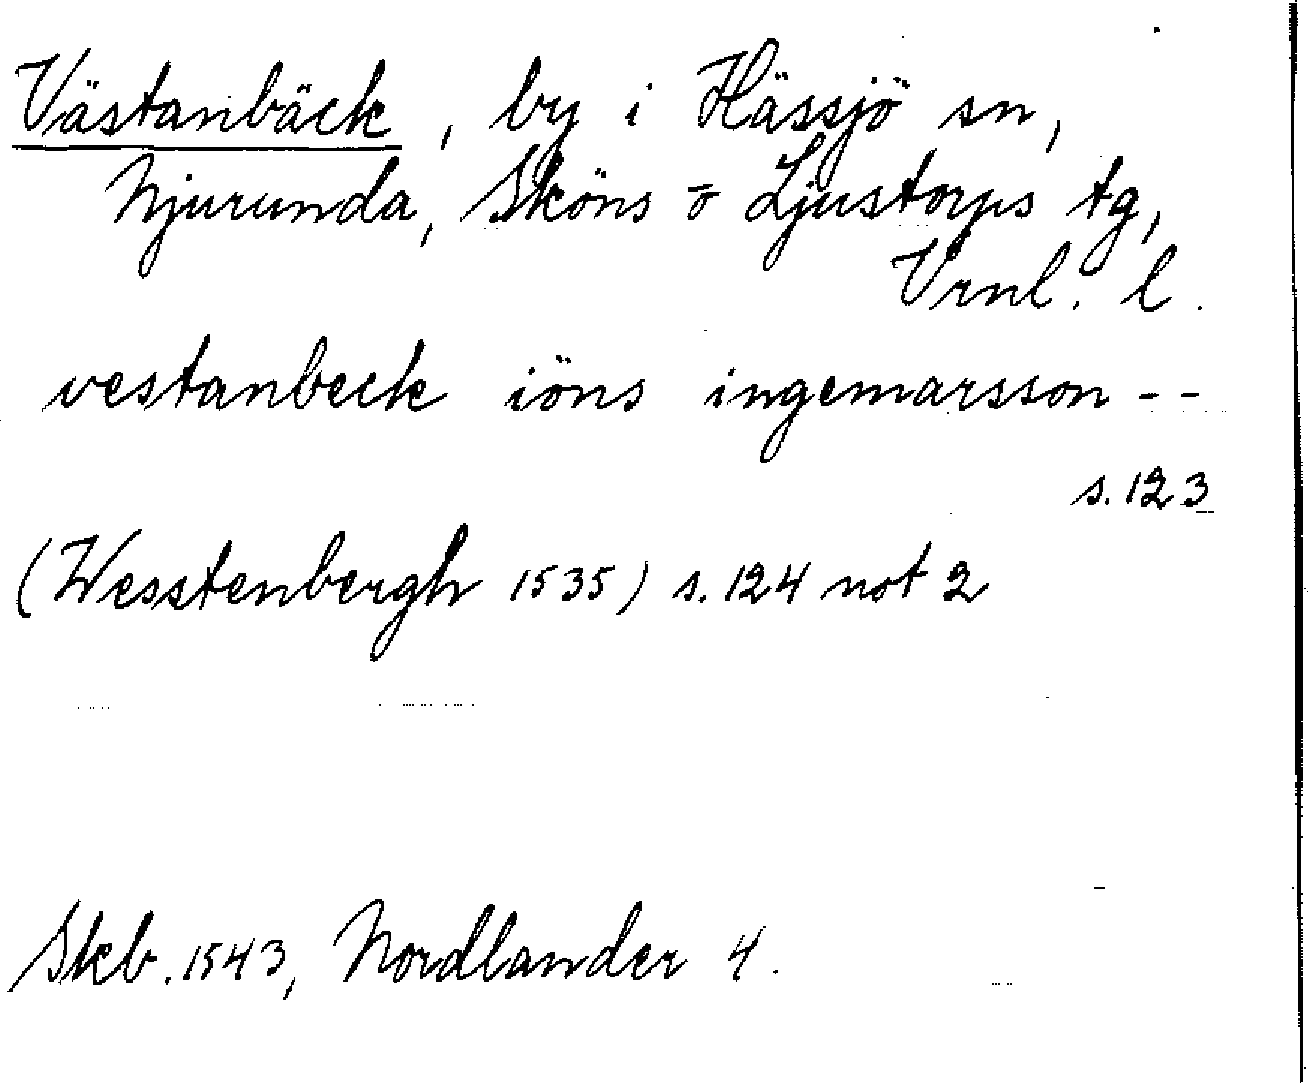 Västanbäck, by i Hässjö sn,
Njurunda, Sköns o Ljustorps tg,
Vrnl. l.
vestanbeck iöns ingemarsson - -
s. 123
(Wesstenbergh 1535) s. 124 not 2
Skb. 1543, Nordlander 4.